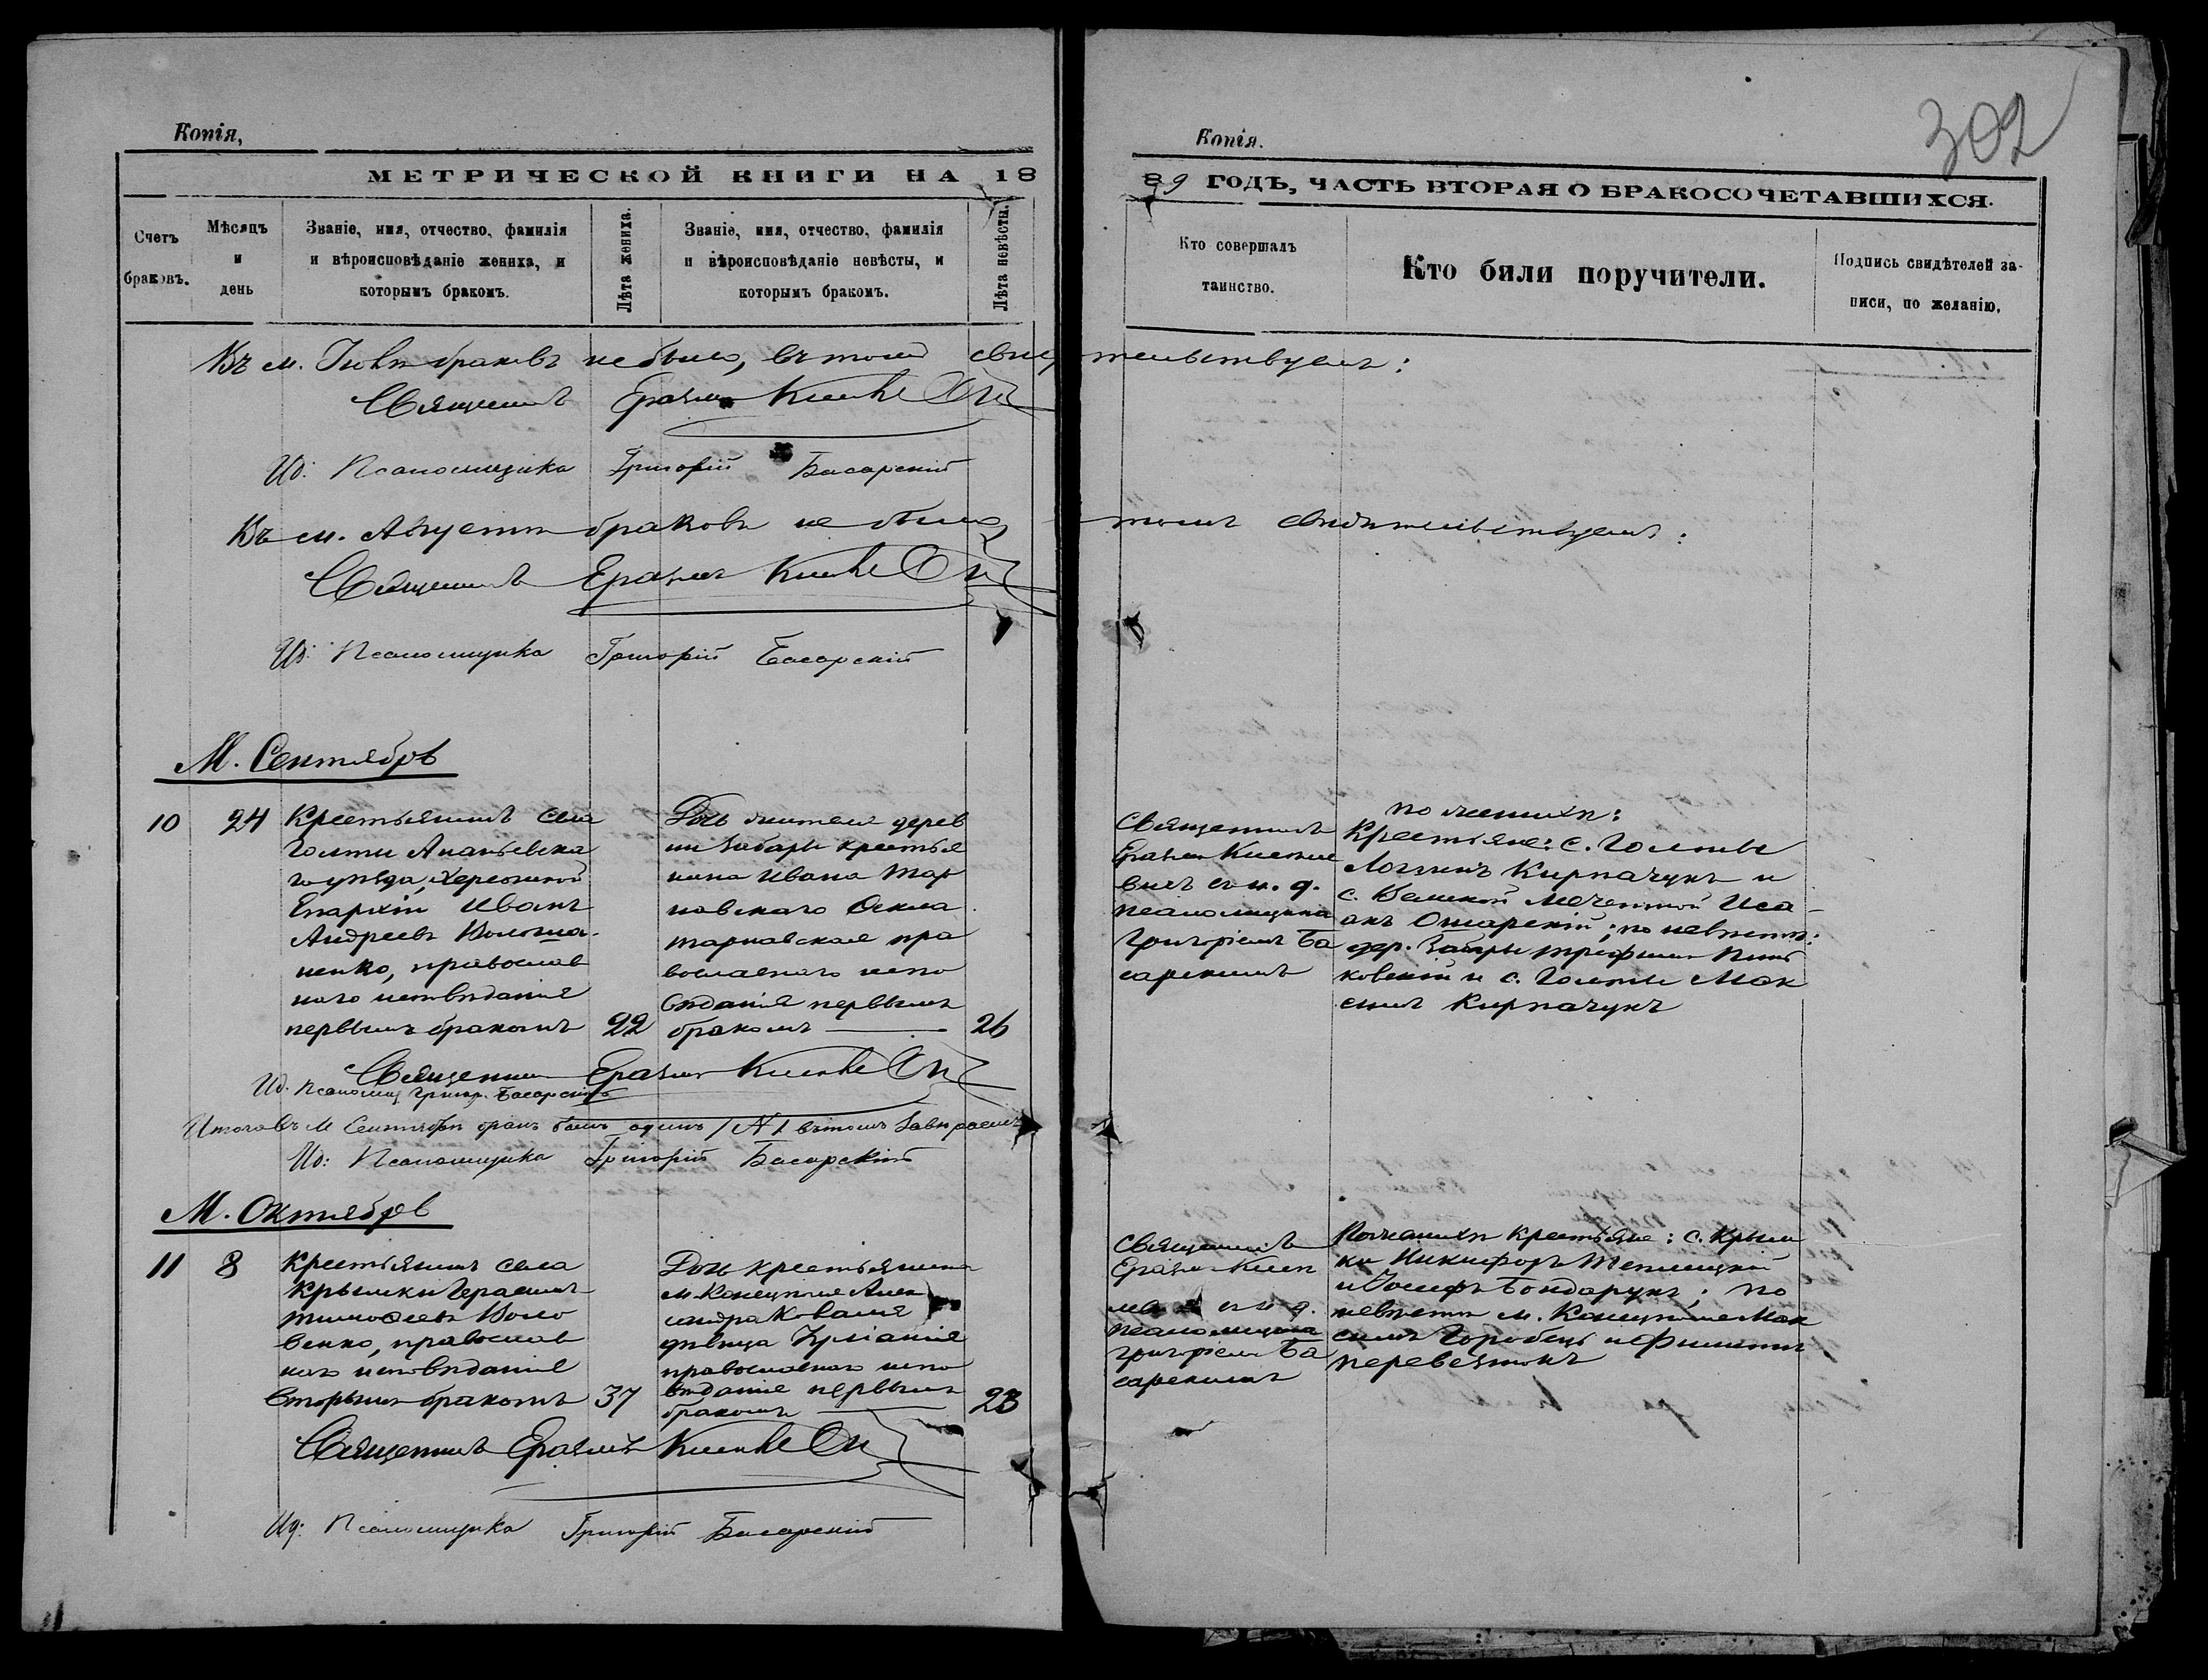 302
Копія,
МЕТРИЧЕСКОЙ КНИГИ НА 18
Счетъ браковъ.
Мѣсяцъ и день
Званіе, имя, отчество, фамилія
и вѣроисповѣданіе жениха, и
которымъ бракомъ.
Лѣта жениха.
Званіе, имя, отчество, фамилія
и вѣроисповѣданіе невѣсты, и
которымъ бракомъ.
Лѣта невѣсты.
Копія.
89 ГОДЪ, ЧАСТЬ ВТОРАЯ О БРАКОСОЧЕТАВШИХСЯ.
Кто совершалъ
таинство.
Кто били поручители.
Подпись свидѣтелей за-
писи, по желанію.
Въ м. браковъ небыло, въ томъ свидѣтельствуемъ:
Священникъ Еразмъ
Ид: Псаломщика Григорій Басарскій
Въ м. Августѣ браковъ не было, томъ свидѣтельствуемъ:
Священникъ Еразмъ
Ид: Псаломщика Григорій Басарскій
М. Сентябрь
10 24
Крестьянинъ села
Голты Ананьевска
го уѣзда, Херсонской
Епархіи Иванъ
Андреевъ Волоша-
ненко, православ
наго исповѣданія
первымъ бракомъ 22
Дочь жителя дерев
ни Забары крестья
нина Ивана Тар
навскаго
тарнавская пра
вославнаго испо
вѣданія первымъ
бракомъ 26
Священникъ
Еразмъ
вичъ съ и. д.
псаломщика
Григоріемъ Ба
сарскимъ
по женихѣ:
Крестьяне: с. Голты
Логинъ Кирпачукъ и
с. Великой Мечетной Иса-
акъ по невѣстѣ:
дер. Забары Трофимъ
ковскій и с. Голты Мак
симъ Кирпачукъ
Священникъ Еразмъ
Ид. Псаломщ. Григор. Басарскій
Итого въ м Сентябрѣ бракъ былъ одинъ въ томъ завѣряемъ
Ид: Псаломщика Григорій Басарскій
М. Октябрь
11 8
Крестьянинъ села
Крымки Герасимъ
Тимофеевъ Воло
венко, православ
наго исповѣданія
вторымъ бракомъ 37
Дочь крестьянина
м. Конецполя Алек
сандра Коваля
дѣвица Іуліанія
православнаго испо
вѣданія первымъ
бракомъ 23
Священникъ
Еразмъ
съ и д.
псаломщика
Григоріемъ Ба
сарскимъ
По женихѣ крестьяне: с. Крым
ки Никифоръ
и Іосифъ Бондарукъ; по
невѣстѣ м. Конецполя Мак
симъ Горобецъ и Филиппъ
Перевезтокъ
Священникъ Еразмъ
Ид: Псаломщика Григорій Басарскій